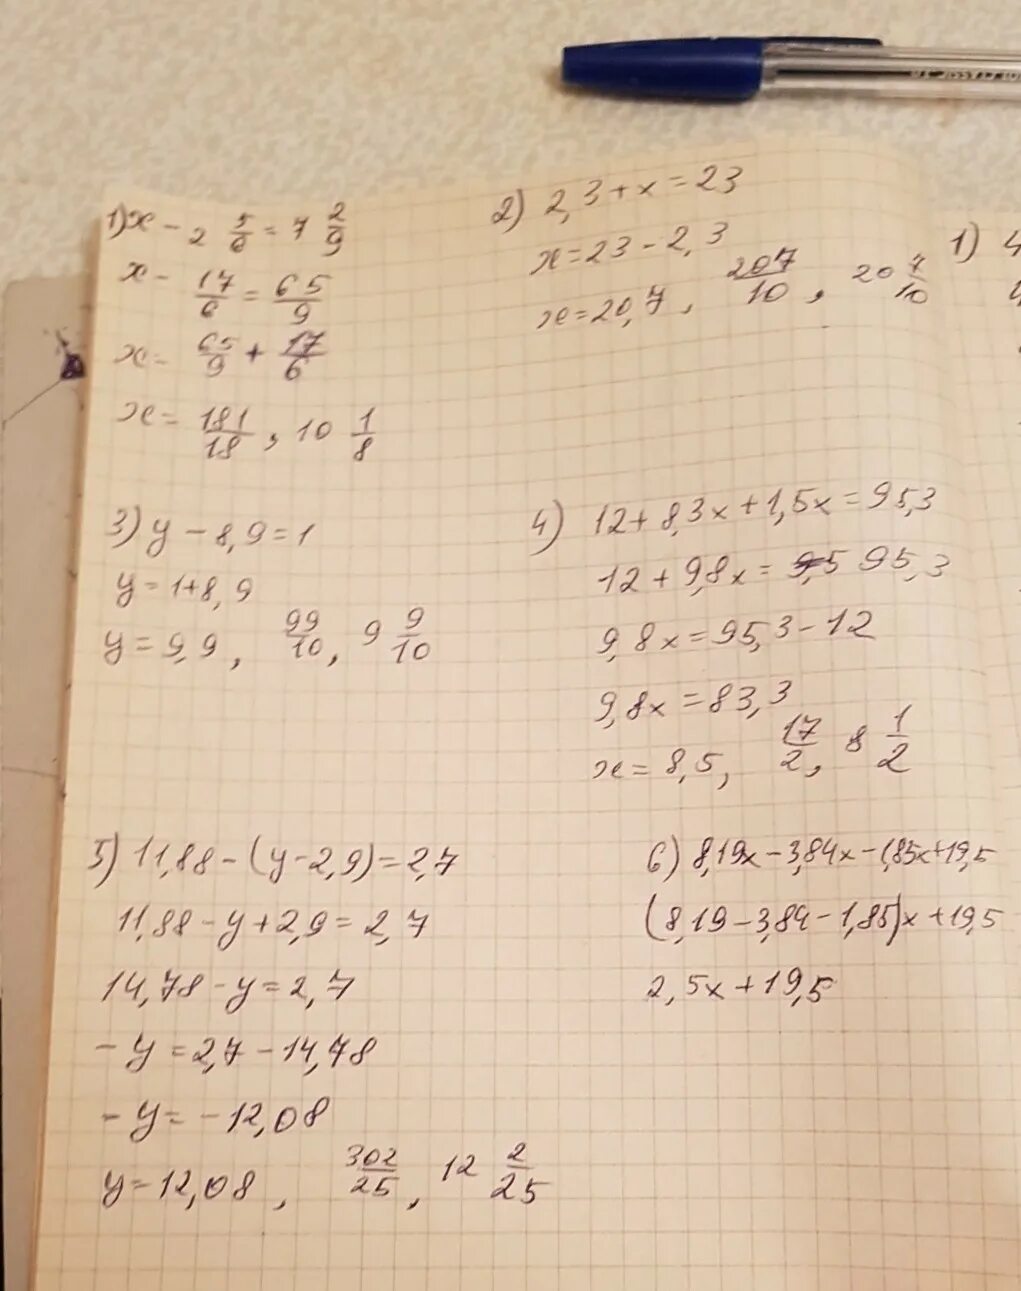 1) x - 2 5/6 = 7 2/9
x - 17/6 = 65/9
x = 65/9 + 17/6
x = 181/18, 10 1/8
2) 2,3 + x = 23
x = 23 - 2,3
x = 20,7, 207/10, 20 7/10
1) 4
3) y - 8,9 = 1
y = 1 + 8,9
y = 9,9, 99/10, 9 9/10
4) 12 + 8,3x + 1,5x = 95,3
12 + 9,8x = 95,3
9,8x = 95,3 - 12
9,8x = 83,3
x = 8,5, 17/2, 8 1/2
5) 11,88 - (y - 2,9) = 2,7
11,88 - y + 2,9 = 2,7
14,78 - y = 2,7
- y = 2,7 - 14,78
- y = - 12,08
y = 12,08, 302/25, 12 2/25
6) 8,19x - 3,84x - 1,85x + 19,5
(8,19 - 3,84 - 1,85)x + 19,5
2,5x + 19,5